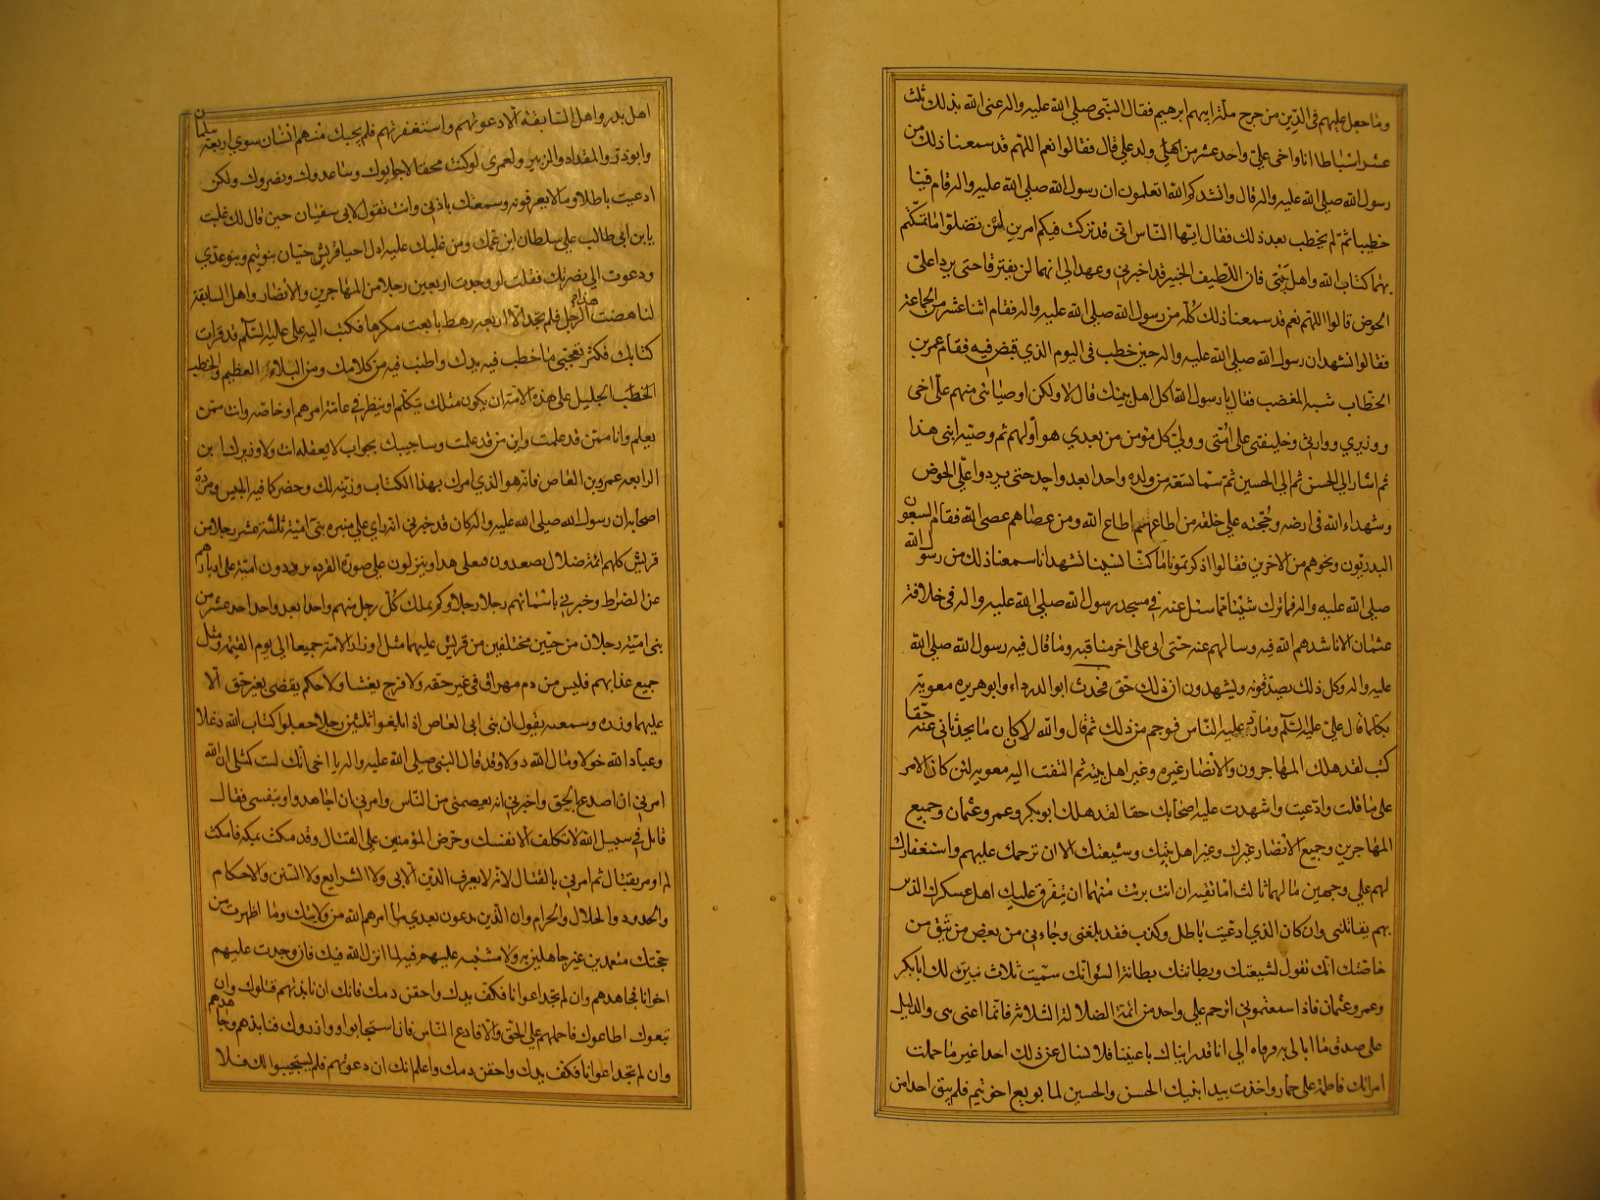 وما جعل عليهم فى الدين من حرج ملة ابيهم ابرهيم فقال النبى صلى الله عليه واله عنى الله بذلك ثلث
عشر انسانا انا واخى على واحد عشر من اهلى ولد على قال فقالوا نعم اللهم قد سمعنا ذلك من
رسول الله صلى الله عليه واله قال وانشدكم الله اتعلمون ان رسول الله صلى الله عليه واله قام فينا
خطيبا ثم لم يخطب بعد ذلك فقال ايها الناس انى قد تركت فيكم امرين لن تضلوا ما تمسكتم
بهما كتاب الله واهل بيتى فان اللطيف الخبير قد اخبرنى وعهد الى انهما لن يفترقا حتى يردا على
الحوض قالوا اللهم نعم قد سمعنا ذلك كله من رسول الله صلى الله عليه واله فقام اثنا عشر من الجماعة
فقالوا نشهد ان رسول الله صلى الله عليه واله حين خطب فى اليوم الذى قبض فيه فقام عمر بن
الخطاب شبه المغضب فقال يا رسول الله اكل اهل بيتك قال لا ولكن اوصيائى منهم على اخى
ووزيرى ووارثى وخليفتى على امتى وولى كل مؤمن من بعدى هو اولهم ثم وصيه ابنى هذا
ثم اشار الى الحسن ثم الى الحسين ثم تسعة من ولده واحدا بعد واحد حتى يردوا على الحوض
وشهداء الله فى ارضه وحججه على خلقه من اطاعهم اطاع الله ومن عصاهم عصى الله فقام السبعون
البدريون ونحوهم من الاخرين فقالوا اذكرتمونا ما كنا نسينا نشهد انا سمعنا ذلك من رسول الله
صلى الله عليه واله فما ترك شيئا مما سئل عنه فى مسجد رسول الله صلى الله عليه واله فى خلافة
عثمان الا ناشدهم الله فيه وسالهم عنه حتى اتى على اخر مناقبه وما قال فيه رسول الله صلى الله
عليه واله وكل ذلك يصدقونه ويشهدون ان ذلك حق فحدث ابو الدرداء وابو هريره معوية
بكلما قال على عليه السلم وما رد عليه الناس فوجم من ذلك ثم قال والله لان كان ما يحدثانى عنه حقا
لقد هلك المهاجرون والانصار غيره وغير اهل بيته ثم التفت اليه معويه لئن كان الامر
على ما قلت وادعيت واشهدت عليه اصحابك حقا لقد هلك ابوبكر وعمر وعثمان وجميع
المهاجرين وجميع الانصار غيرك وغير اهل بيتك وشيعتك الا ان ترحمك عليهم واستغفارك
لهم على وجهين ما لهما ثالث اما تقية ان انت برئت منهما ان يتفرق عليك اهل عسكرك الذين
بهم يقاتلنى وان كان الذى ادعيت باطل وكذب فقد بلغنى وجاءنى من بعض من تثق من
خاصتك انك تقول لشيعتك وبطانتك بطانة السوء انك سميت ثلاث بنين لك ابابكر
وعمر وعثمان فاذا سمعتمونى اترحم على واحد من ائمة الضلالة الثلاثة فانما اعنى بنى والدليل
على صدق ما الى انا قد رايناك باعيننا فلا نسال عن ذلك احدا غير ما حملت
امراتك فاطمة على حمار واخذت بيد ابنيك الحسن والحسين لما بويع اخو تيم فلم يبق احد من
اهل بدر واهل السابقة الا دعوتهم واستنفرتهم فلم يجبك منهم انسان سوى اربعة سلمان
وابوذر والمقداد والزبير ولعمرى لو كنت محقا لاجابوك وساعدوك ونصروك ولكن
ادعيت باطلا وما لا يعرفونه وسمعتك باذنى وانت تقول لابى سفيان حين قال لك غلبت
يا بن ابى طالب على سلطان ابن عمك ومن غلبك عليه اذل احيا قريش حيان بنو تيم وبنو عدى
ودعوت الى نصرتك فقلت لو وجدت اربعين رجلا من المهاجرين والانصار واهل السابقة
لناهضت هذا الرجل فلم تجد الا اربعة رهط بايعت مكرها فكتب اليه على عليه السلم قد قرات
كتابك فكثر تعجبى ما خطب فيه يدك واطنب فيه من كلامك ومن البلاء العظيم والخطب
الخطب الجليل على هذه الامة ان يكون مثلك يتكلم او ينظر فى عامة امرهم او خاصة وانت ممن
يعلم وانا ممن قد علمت وابن من قد علمت وساجيبك بجواب لا يعقله انت ولا وزيرك ابن
الرابعة عمرو بن العاص فانه هو الذى امرك بهذا الكتاب وزينه لك وحضركما فيه ابليس ومردة
اصحابه ان رسول الله صلى الله عليه واله كان قد خبرنى انه راى على منبره بنى امية ثلثة عشر رجلا من
قريش كلهم ائمة ضلال يصعدون وينزلون على صورة القردة يردون امته على ادبارهم
عن الصراط وخبرنى باسمائهم رجلا رجلا وكم يملك كل رجل منهم واحدا بعد واحد احد عشر من
بنى امية ورجلان من حيين مختلفين من قريش عليهما مثل اوزار الامة جميعا الى يوم القيمة ومثل
جميع عذابهم فليس من دم مهراق فى غير حقه ولا فرج يغشا ولا حكم يقضى بغير حق الا
عليهما وزره وسمعته يقول ان بنى ابى العاص اذا بلغوا ثلثين رجلا جعلوا كتاب الله دغلا
وعباد الله خولا ومال الله دولا وقد قال النبى صلى الله عليه واله يا اخى انك لست كمثلى ان الله
امرنى ان اصدع بالحق واخبرنى انه يعصمنى من الناس وامرنى ان اجاهد ولو بنفسى فقال
قاتل فى سبيل الله لا تكلف الا نفسك وحرض المؤمنين على القتال وقد مكثت بمكة ما مكث
لم اومر بقتال ثم امرنى بالقتال لانه لا يعرف الدين الا بى ولا الشرايع ولا السنن والاحكام
والحدود والحلال والحرام وان الذين يدعون بعدى ما امرهم الله من ولايتك وما اظهرت من
حجتك متعمدين غير جاهلين به ولا مشتبه عليهم فيه لما انزل الله فيك فان وجدت عليهم
اخوانا فجاهدهم وان لم تجد اعوانا فكف يدك واحقن دمك فانك ان نابذتهم قتلوك وان
تبعوك اطاعوك فاحملهم على الحق والا فادع الناس فان استجابوا ووازروك فنابذهم وجاهدهم
وان لم تجد اعوانا فكف يدك واحقن دمك واعلم انك ان دعوتهم فلم يستجيبوا لك فلا